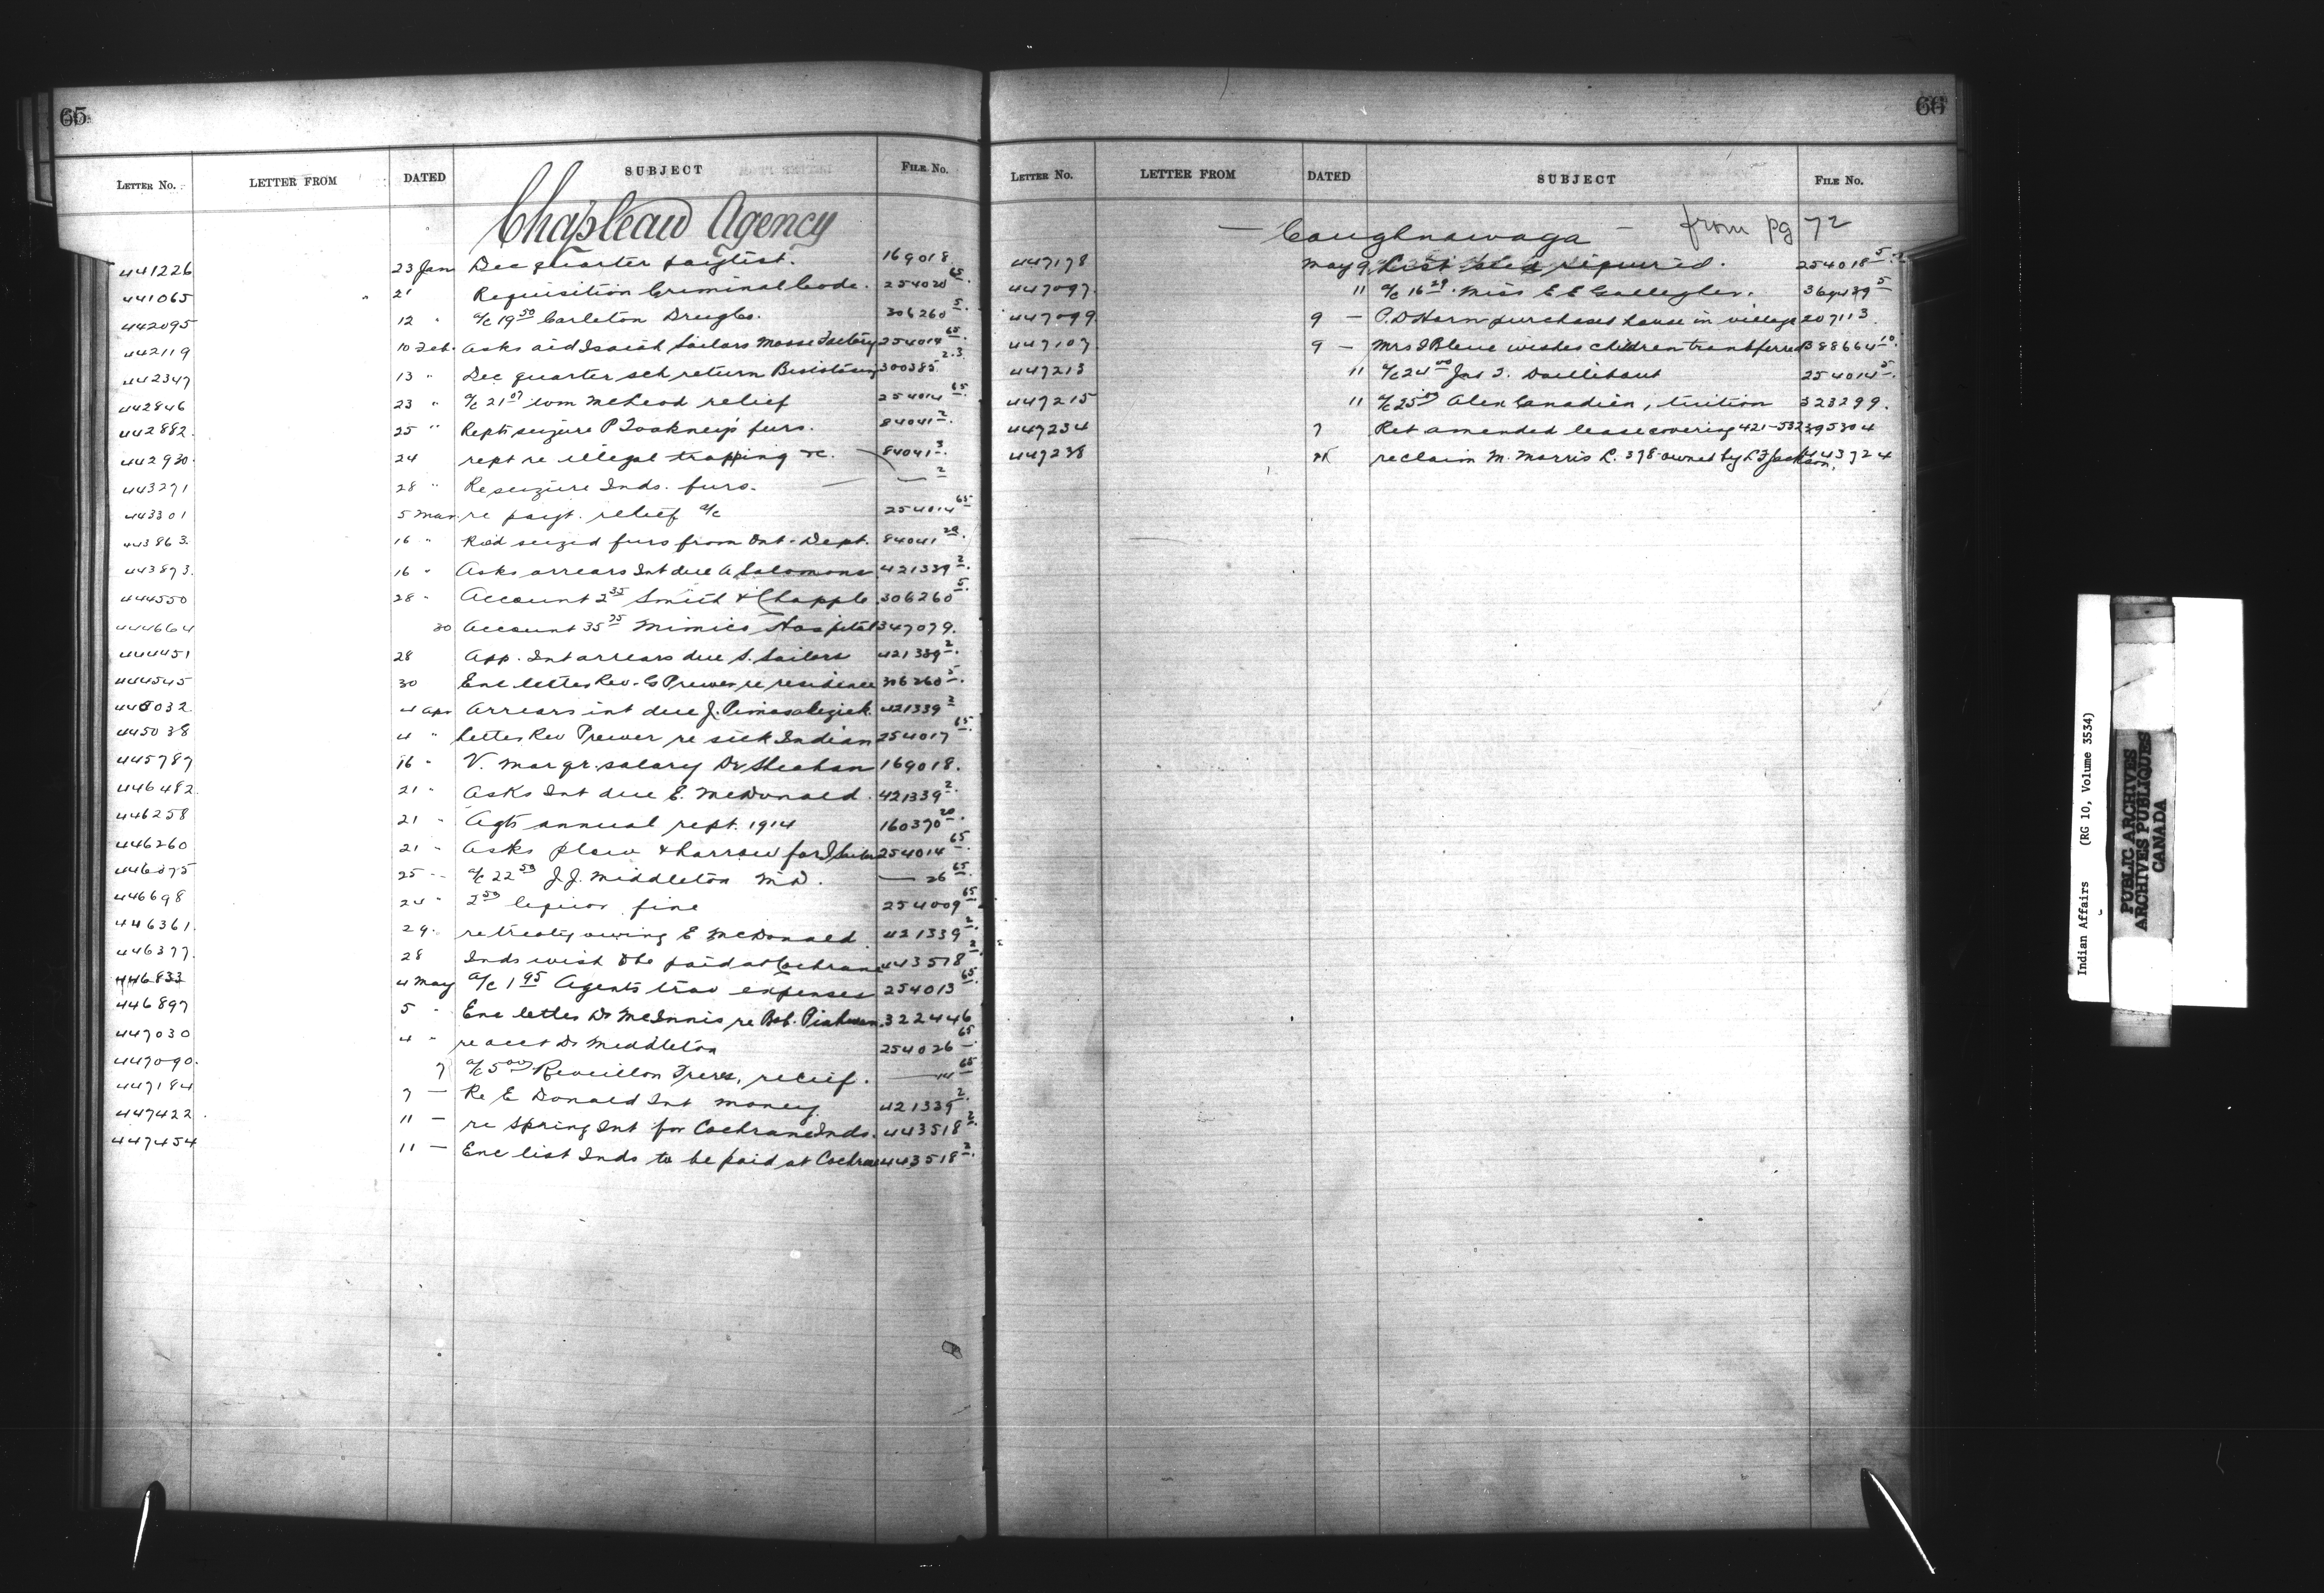 65
LETTER No. LETTER FROM DATED SUBJECT FILE No.
Chapleau Agency
441226 23 Jan Dec quarter paylist. 169018
441065 21 Requisition Criminal Code. 254020 65.
442095 12 " a/c 19 50 Carleton Drug Co. 306260 5
442119 10 Feb. Asks aid Isaiah Sailors Moose Factory 254014 65.
442347 13 " Dec quarter sch return 300385 2.3
442846 23 " a/c 21 07 Wm McLeod relief 254014 65
442882. 25 " Repts seizure P furs. 84041 2.
442930 24 rept re illegal trapping &c. 84041 3.
443271 28 " Re seizure Inds. furs. — — 2
443301 5 Mar re payt. relief a/c 254014 65
443863. 16 " Recd seized furs from Ont. Dept. 84041 20.
443873. 16 " Asks arrears Int due A Solomons 421339 2.
444550 28 " Account 2 35 Smith & Chapple 306260 5.
444664 30 Account 35 75 Mimico Hospital 347079.
444451 28 App. Int arrears due S. Sailors 421339 2.
444545 30 Enc letter Rev. G Prewer re residence 306260 5.
445032 4 Apr Arrears int due J. 421339 2
445038 4 " Letter Rev Prewer re sick Indian 254017 65.
445787 16 " V. Mar qr. salary Dr Sheahan 169018.
446482 21 " Asks Int due E. McDonald. 421339 2.
446258 21 " Agts annual rept. 1914 160370 20.
446260 21 " Asks plow & harrow for 254014 65.
446075 25 " a/c 22 50 J.J. Middleton M.D. — 26 65.
446698 24 " 2 50 liquor fine 254009 65
446361. 29. re treaty owing E McDonald. 421339 2.
446377. 28 Inds wish to be paid at Cochrane 443518 2
446833 4 May a/c 1 95 Agents trav expenses 254013 65.
446897 5 " Enc letter Dr McInnis re Bob. 322446
447030 4 " re acct Dr Middleton 254026 65
447090. 7 a/c 5 00 Revillon Freres, relief. — 14 65
447184 7 — Re E Donald Int money 421339 2.
447422 11 — re Spring Int for Cochrane Inds. 443518 2.
447454 11 — Enc list Inds to be paid at Cochrane 443518 2.
66
LETTER No. LETTER FROM DATED SUBJECT FILE No.
— Caughnawaga — from pg 72
447178 May 9 required. 254018 5.
447097. 11 a/c 16 29. Miss E E Gallagher. 5
447099. 9 — P.D Horn purchases house in village 207113.
447107 9 — Mrs J Blene wishes children transferred 388664 10.
447213 11 a/c 24 00 Jas T. Daillibout 254014 5.
447215 11 a/c 25 00 Alex Canadien, tuition 323299.
447234 7 Ret amended lease covering 421-532 395304
447238 re claim M. Morris L. 378 owned by L F Jackson, 443724
Indian Affairs (RG 10, Volume 3534)
PUBLIC ARCHIVES
ARCHIVES PUBLIQUES
CANADA